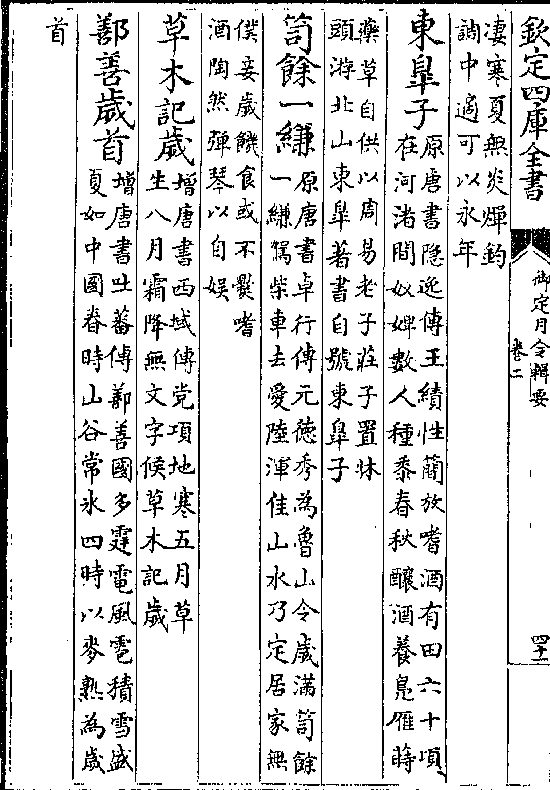 欽定四庫全書
御定月令輯要
卷二
四十一
凄寒夏無炎燀鈞
調中適可以永年
東臯子
原唐書隠逸傳王績性簡放嗜酒有田六十頃
在河渚間奴婢數人種黍春秋釀酒養鳬雁蒔
藥草自供以周易老子莊子置牀
頭游北山東臯著書自號東臯子
笥餘一縑
原唐書卓行傳元徳秀為魯山令歲滿笥餘
一縑駕柴車去愛陸渾佳山水乃定居家無
僕妾歲饑食或不㸑嗜
酒陶然彈琴以自娛
草木記歲
增唐書西域傳党項地寒五月草
生八月霜降無文字候草木記歲
鄯善歲首
增唐書吐蕃傳鄯善國多霆電風雹積雪盛
夏如中國春時山谷常氷四時以麥熟為歲
首